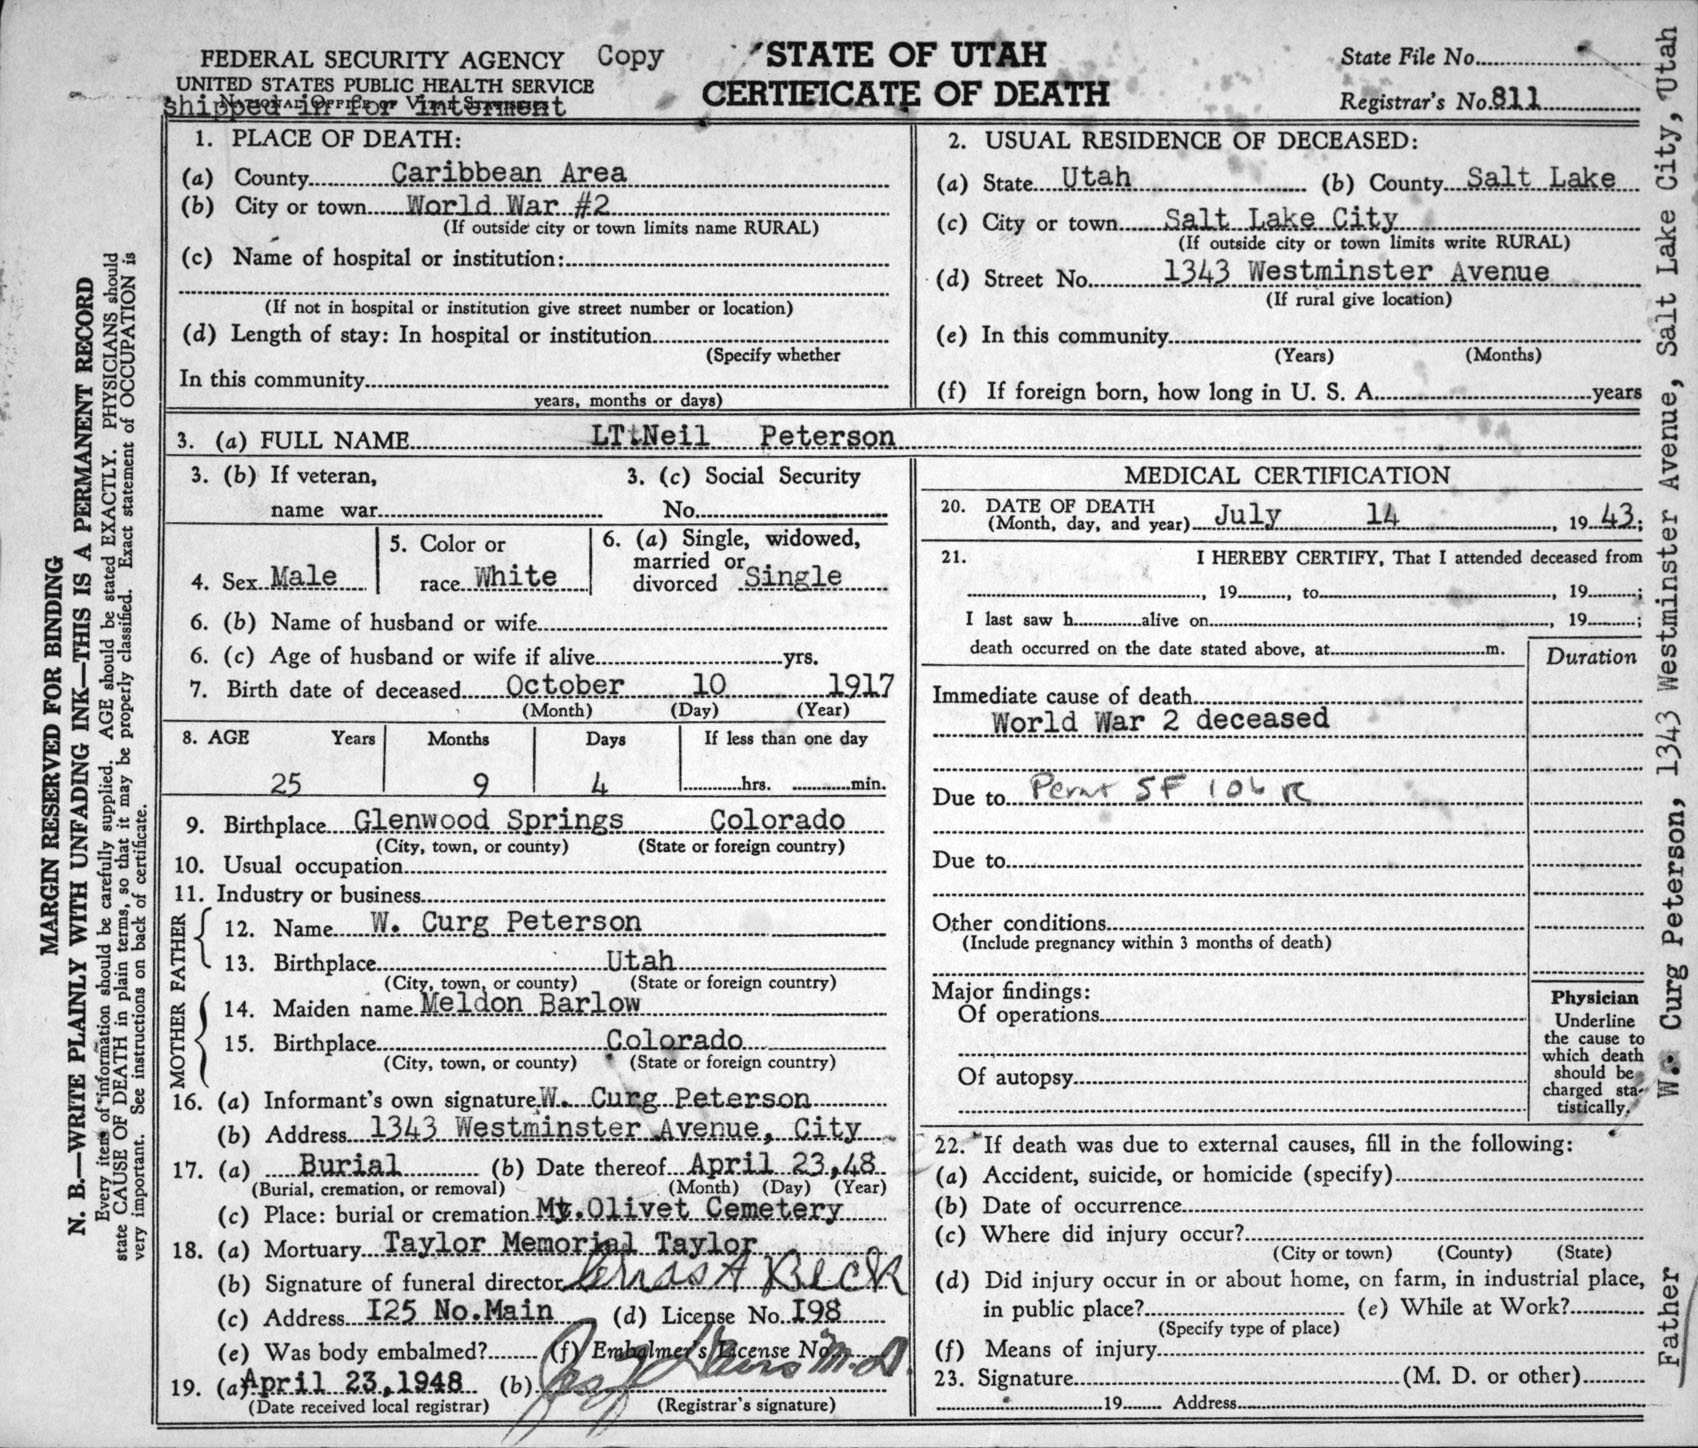 FEDERAL SECURITY AGENCY Copy
UNITED STATES PUBLIC HEALTH SERVICE
NATIONAL OFFICE OF VITAL STATISTICS
shipped in for interment
STATE OF UTAH
CERTIFICATE OF DEATH
State File No.
Registrar's No. 811
1. PLACE OF DEATH:
(a) County Caribbean Area
(b) City or town World War #2
(If outside city or town limits name RURAL)
(c) Name of hospital or institution:
(If not in hospital or institution give street number or location)
(d) Length of stay: In hospital or institution
(Specify whether
In this community
years, months or days)
2. USUAL RESIDENCE OF DECEASED:
(a) State Utah (b) County Salt Lake
(c) City or town Salt Lake City
(If outside city or town limits write RURAL)
(d) Street No. 1343 Westminster Avenue
(If rural give location)
(e) In this community
(Years) (Months)
(f) If foreign born, how long in U. S. A. years
3. (a) FULL NAME LT.Neil Peterson
3. (b) If veteran,
name war
3. (c) Social Security
No.
4. Sex Male
5. Color or
race White
6. (a) Single, widowed,
married or
divorced Single
6. (b) Name of husband or wife
6. (c) Age of husband or wife if alive yrs.
7. Birth date of deceased October 10 1917
(Month) (Day) (Year)
8. AGE Years Months Days If less than one day
25 9 4 hrs. min.
9. Birthplace Glenwood Springs Colorado
(City, town, or county) (State or foreign country)
10. Usual occupation
11. Industry or business
FATHER
12. Name W. Curg Peterson
13. Birthplace Utah
(City, town, or county) (State or foreign country)
MOTHER
14. Maiden name Meldon Barlow
15. Birthplace Colorado
(City, town, or county) (State or foreign country)
16. (a) Informant's own signature W. Curg Peterson
(b) Address 1343 Westminster Avenue, City
17. (a) Burial (b) Date thereof April 23,48
(Burial, cremation, or removal) (Month) (Day) (Year)
(c) Place: burial or cremation Mt.Olivet Cemetery
18. (a) Mortuary Taylor Memorial Taylor
(b) Signature of funeral director Beck
(c) Address I25 No.Main (d) License No. I98
(e) Was body embalmed? (f) Embalmer's License No.
19. (a) April 23,1948 (b) M.D.
(Date received local registrar) (Registrar's signature)
MEDICAL CERTIFICATION
20. DATE OF DEATH
(Month, day, and year) July 14, 19 43;
21. I HEREBY CERTIFY, That I attended deceased from
, 19 , to , 19 ;
I last saw h alive on , 19 ;
death occurred on the date stated above, at m.
Duration
Immediate cause of death
World War 2 deceased
Due to SF 106 R
Due to
Other conditions
(Include pregnancy within 3 months of death)
Major findings:
Of operations
Of autopsy
Physician
Underline
the cause to
which death
should be
charged sta-
tistically.
22. If death was due to external causes, fill in the following:
(a) Accident, suicide, or homicide (specify)
(b) Date of occurrence
(c) Where did injury occur?
(City or town) (County) (State)
(d) Did injury occur in or about home, on farm, in industrial place,
in public place? (e) While at Work?
(Specify type of place)
(f) Means of injury
23. Signature (M. D. or other)
19 Address
MARGIN RESERVED FOR BINDING
N. B.—WRITE PLAINLY WITH UNFADING INK—THIS IS A PERMANENT RECORD
Every item of information should be carefully supplied. AGE should be stated EXACTLY. PHYSICIANS should
state CAUSE OF DEATH in plain terms, so that it may be properly classified. Exact statement of OCCUPATION is
very important. See instructions on back of certificate.
Father W. Curg Peterson, 1343 Westminster Avenue, Salt Lake City, Utah